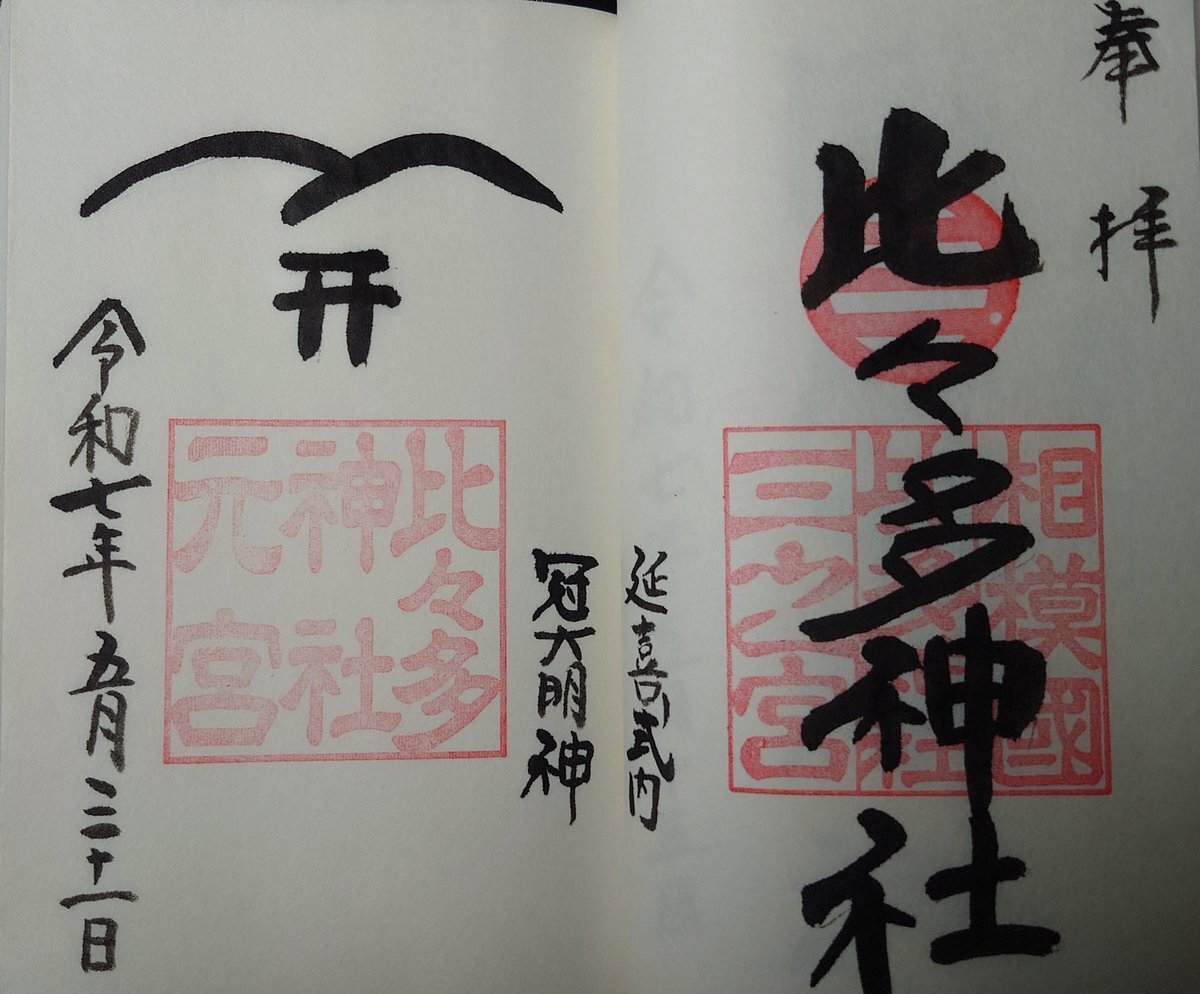 奉拝
比々多神社
相模國
比々多神社
三之宮
三
延喜式内
冠大明神
比々多
神社
元宮
令和七年五月二十一日